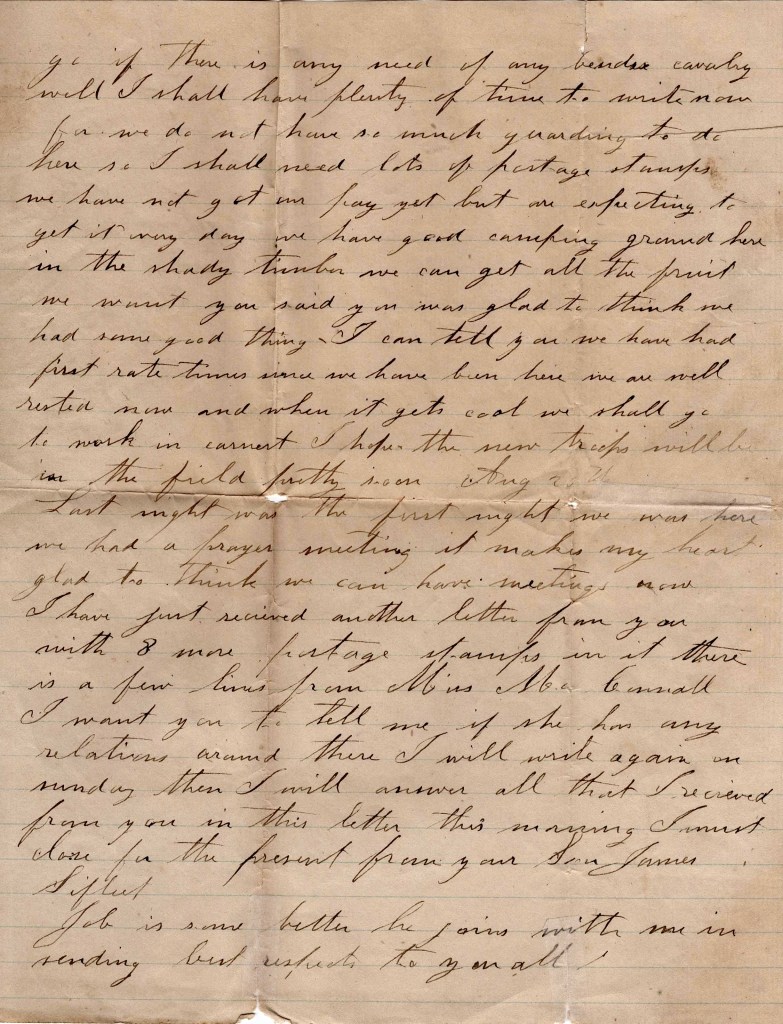 go if there is any need of any cavalry
well I shall have plenty of time to write now
for we do not have so much guarding to do
here so I shall need lots of postage stamps
we have not got our pay yet but are expecting to
get it every day we have good camping ground here
in the shady timber we can get all the fruit
we want you said you was glad to think we
had some good things I can tell you we have had
first rate times since we have been here we are well
rested now and when it gets cool we shall go
to work in earnest I hope the new troops will be
in the field pretty soon Aug
Last night was the first night we was here
we had a prayer meeting it makes my heart
glad to think we can have meetings now
I have just recieved another letter from you
with 8 more postage stamps in it there
is a few lines from Miss Mc Connall
I want you to tell me if she has any
relations around there I will write again on
sunday then I will answer all that I recieved
from you in this letter this morning I must
close for the present from your Son James
Sifleet
Job is some better he joins with me in
sending best respects to you all